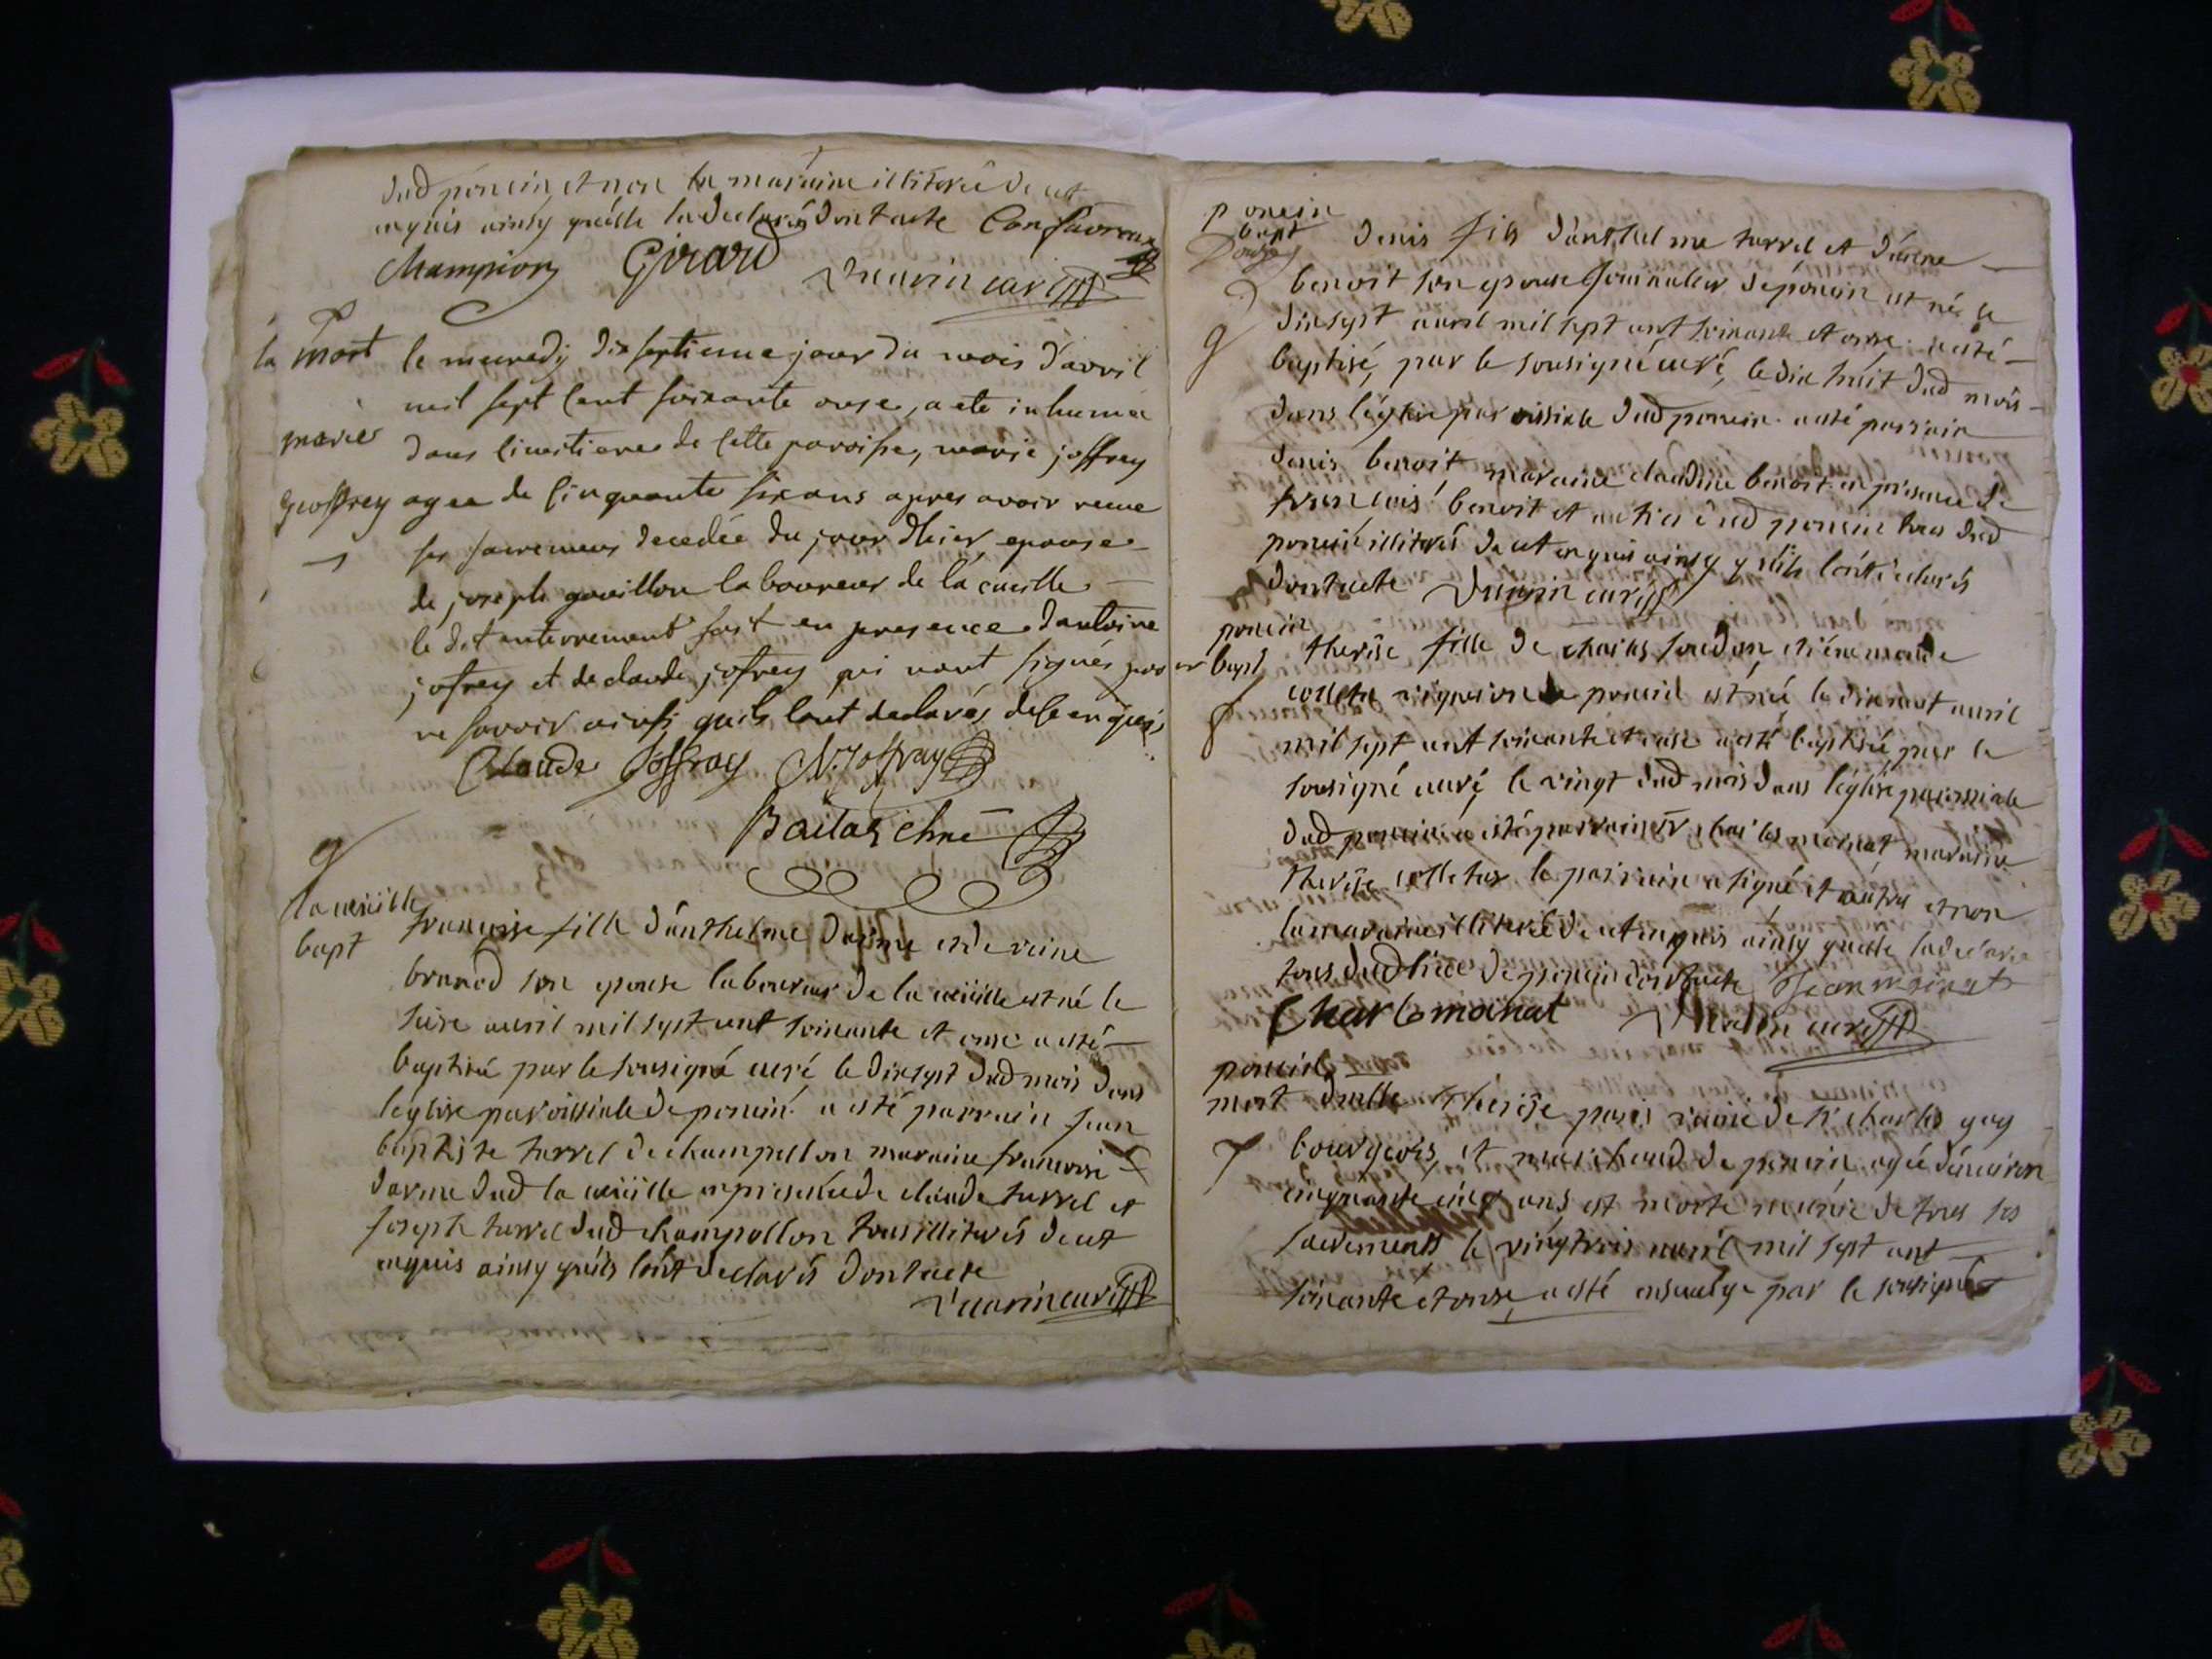 dud poncin, et non la maraine illiterée de cet
enquis ainsy quelle la declaré dont acte
Champion Girard curé
la mort le mecredij dix septieme jour du mois d'avril
mil sept cent soixante onse, a ete inhumée
marie dans cimetiere de cette paroisse, marie joffrey
geoffrey agee de cinquante six ans apres avoir recue
ses sacremens decedée du jour d'hier, epouse
de joseph gouillon laboureur de la cueille
le dit enterrement fait en presence dantoine
jofrey et de claude jofrey qui nont signés pour
ne savoir ainsi quils lont declarés de ce enquis
Claude Joffray Joffray
la cuëille
bapt françoise fille d'anthelme darme et de reine
brunod son epouse laboureur de la cuëille est né le
seise auril mil sept cent soixante et onse a esté
baptisé par le sousigné curé le dixsept dud mois dans
léglise paroissiale de poncin a esté parrain jean
baptiste turrel de champollon maraine francoise
darme dud la cuëille en presence de claude turrel et
joseph turrel dud champollon tous illiterés de cet
enquis ainsy quils lont declarés dont acte
curé
poncin
bapt denis fils d'anthelme turrel et d'
benoit son epouse de poncin est né le
dixsept auril mil sept cent soixante et onse a esté
baptisé, par le sousigné curé, le dix huit dud mois
dans léglise paroissiale dud poncin a esté parrain
denis benoit, maraine claudine benoit en presence de
francois benoit et dud poncin tous dud
poncin illiterés de cet enquis ainsy quils lont declarés
dont acte curé
poncin
bapt therése fille de charles et
vigneron de poncin est née le dixneuf auril
mil sept cent soixante et onse a esté baptisée, par le
sousigné curé, le vingt dud mois dans léglise paroissiale
dud poncin a esté parrain sr charles mornat maraine
therése le parrain a signé et et non
la maraine illiterée de cet enquis ainsy quelle la declaré
tous dud lieu de poncin dont acte Jean
curé
poncin
mort therése veuve de sr charles guy
bourgeois, et marchand de poncin agée denuiron
cinquante cinq ans est morte munie de tous ses
sacrements le vingt trois auril mil sept cent
soixante et onse, a esté par le sousigné